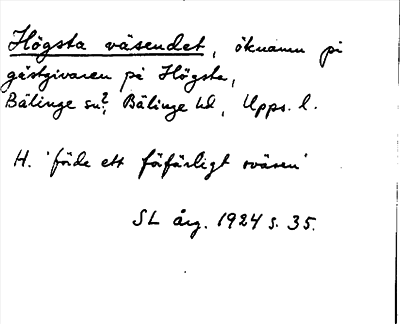 Högsta väsendet, öknamn på
gästgivaren på Högsta,
Bälinge sn?, Bälinge hd, Upps. l.
H. 'förde ett förfärligt oväsen'
SL årg. 1924 s. 35.